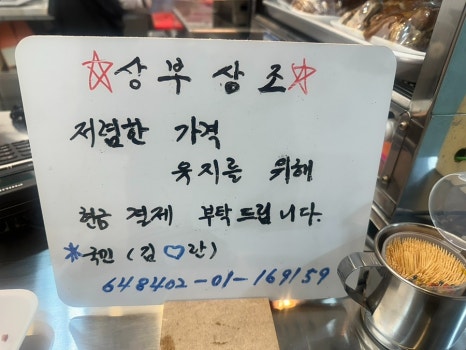 ☆상부 상조☆
저렴한 가격
유지를 위해
현금 결제 부탁드립니다.
*국민 (김♡란)
648402-01-169159